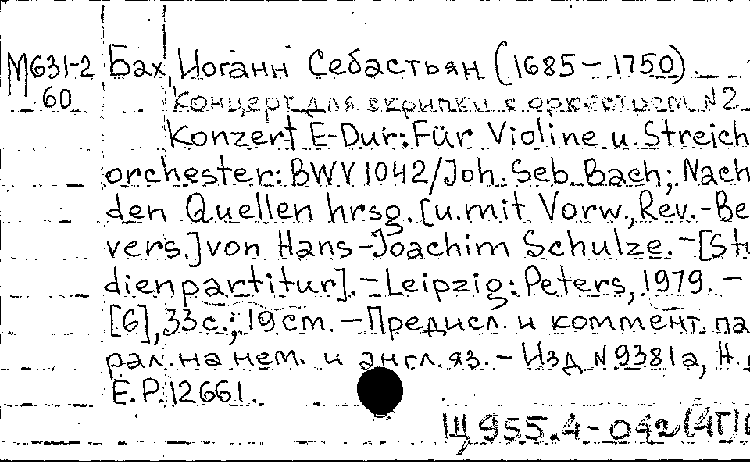 М631-2 Бах, Иоганн Себастьян (1685-1750)
60 Концерт для скрипки с оркестром N2
Konzert E-Dur: Für Violine u. Streich
orchester: BWV 1042/Joh. Seb. Bach; Nach
den Quellen hrsg. [u. mit Vorw., Rev.-Be
vers.] von Hans-Joachim Schulze. -[St
dienpartitur]. - Leipzig: Peters, 1979. -
[6], 33 с.; 19 см. - Предисл. и коммент. па
рал. на нем. и англ. яз. - Изд. N 9381a, Н.
E.P. 12661.
Щ 955.4-042(4Г)